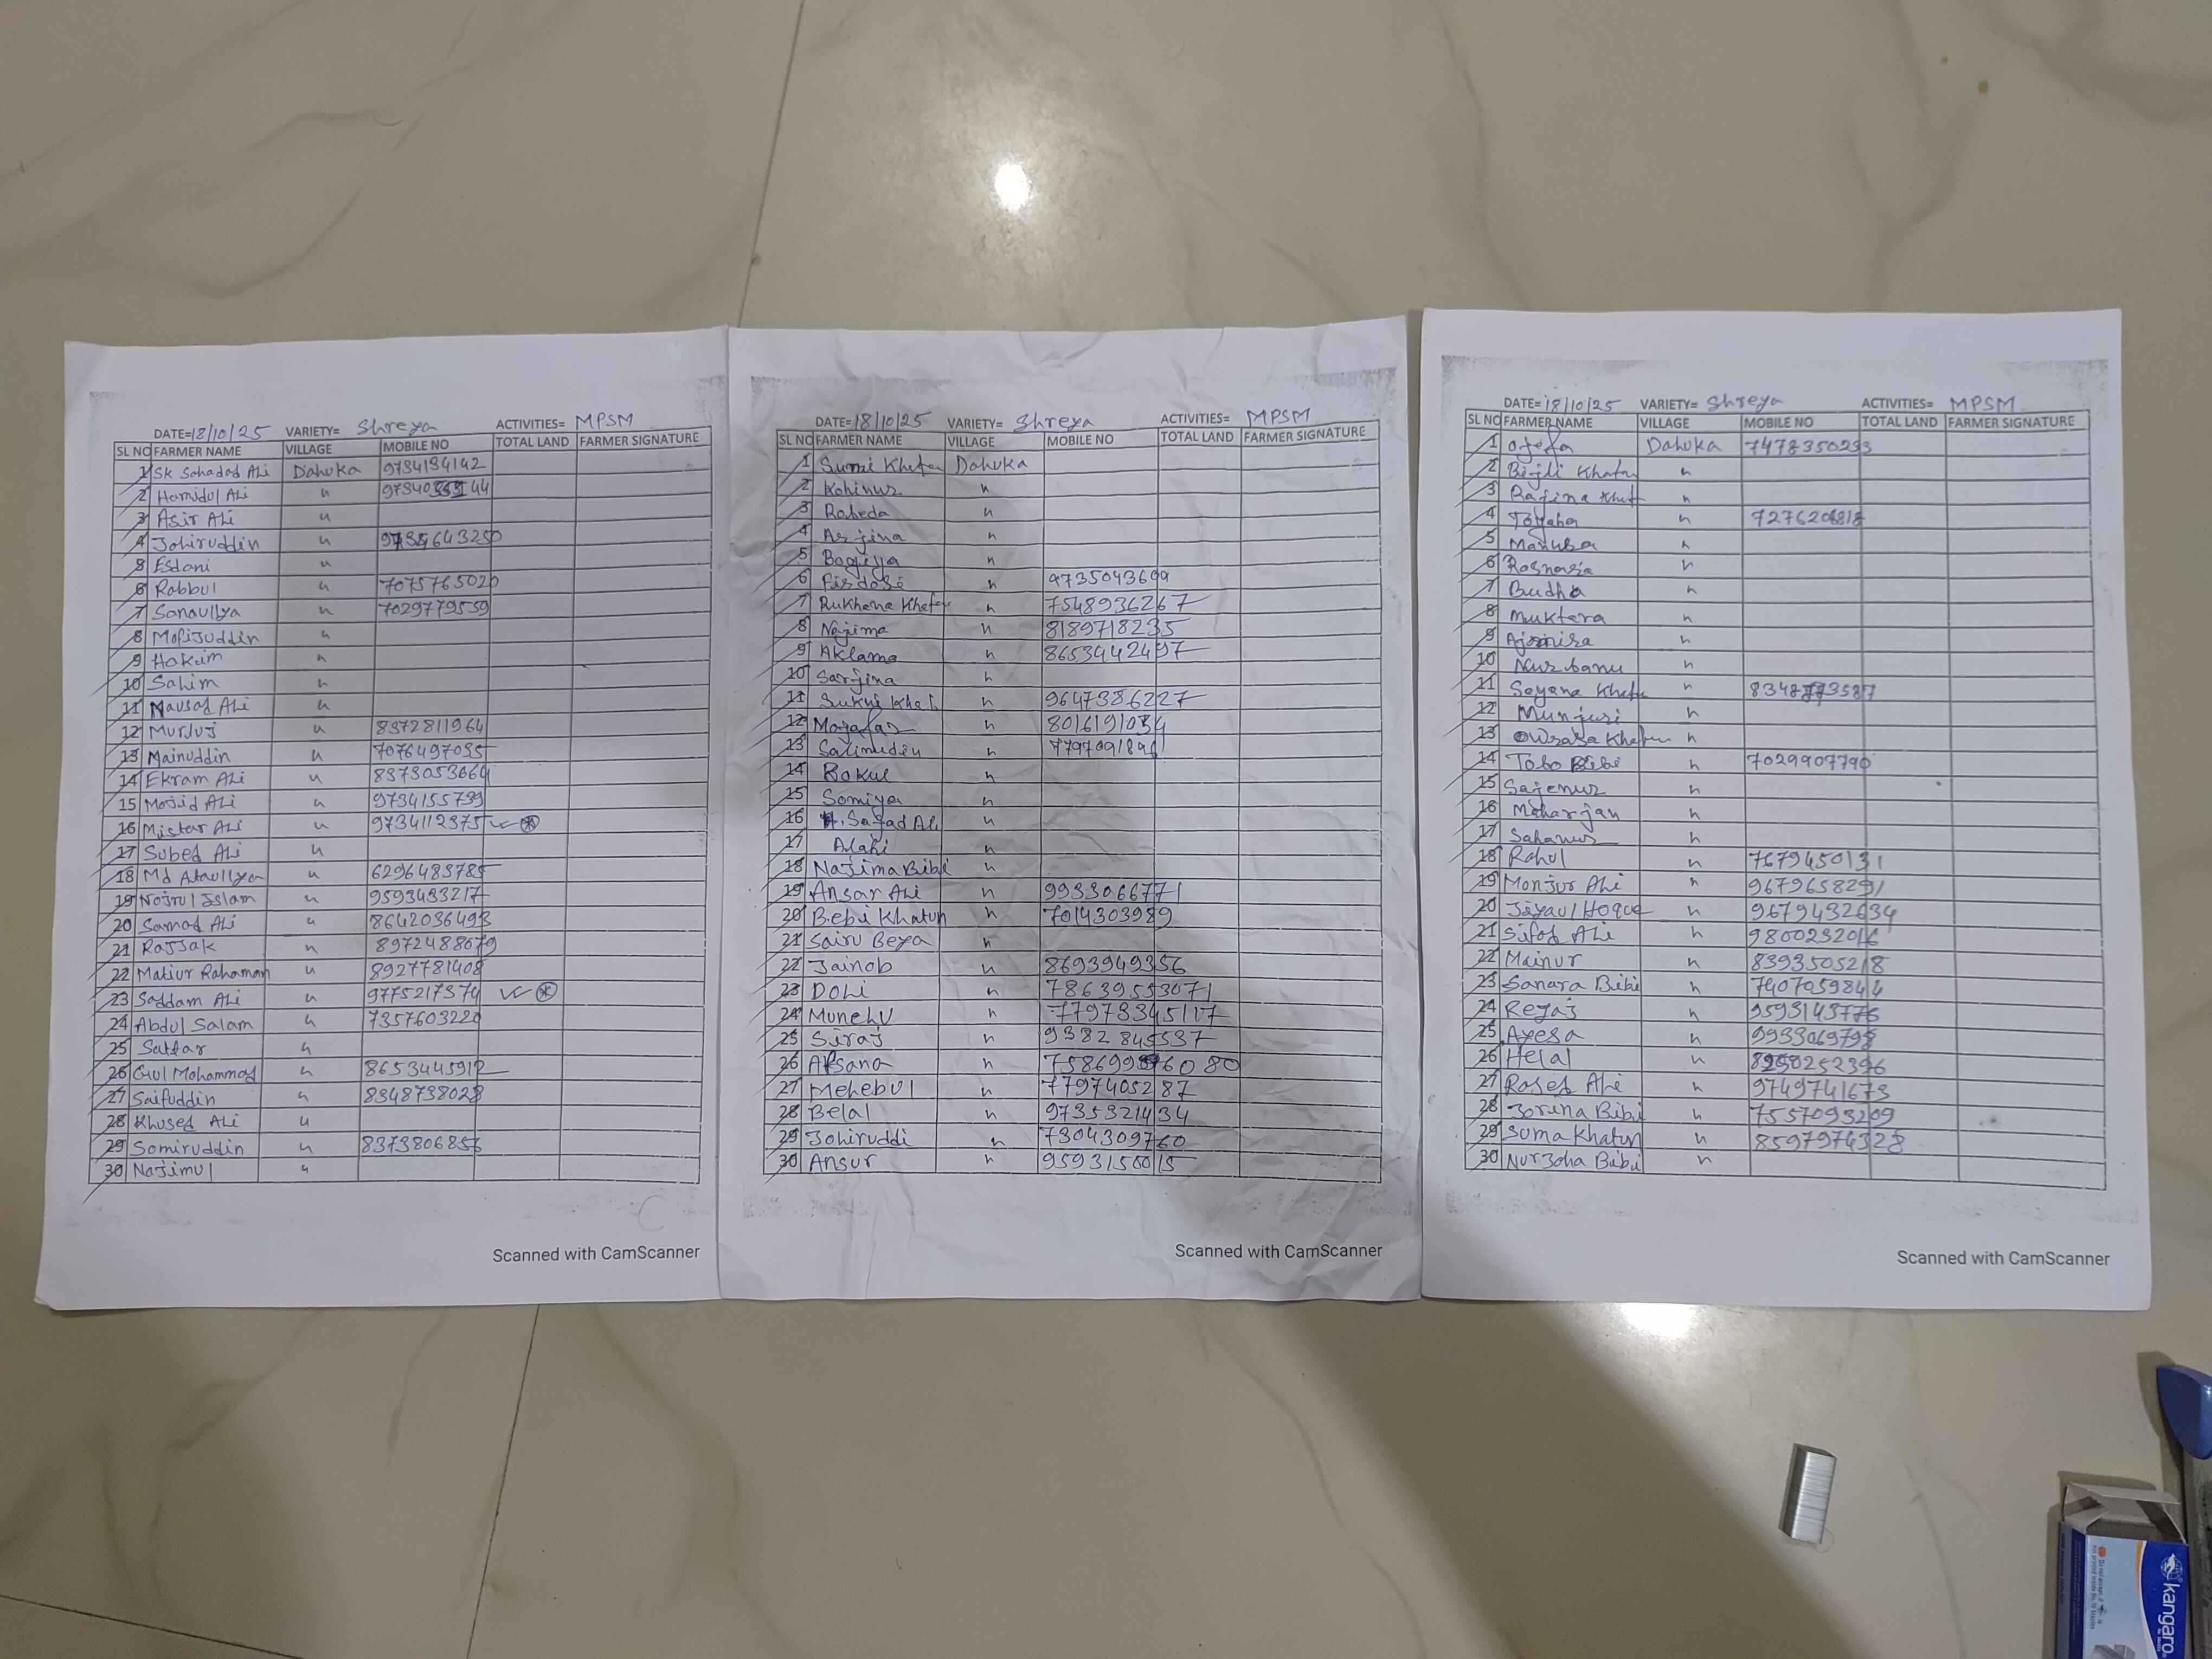 DATE=18/10/25 VARIETY= Shreya ACTIVITIES= MPSM
SL NO FARMER NAME VILLAGE MOBILE NO TOTAL LAND FARMER SIGNATURE
1 Sk Sahadad Ali Dahuka 9734134142
2 Hamidul Ali "
3 Asir Ali "
4 Johiruddin "
5 Esdani "
6 Rabbul " 7075765020
7 Sanaullya " 7029779559
8 Mofijuddin "
9 Hakim "
10 Sahim "
11 Nausad Ali "
12 Murluj " 8372811964
13 Mainuddin " 7076497035
14 Ekram Ali " 8373053664
15 Mojid Ali " 9734155799
16 Mistar Ali " 9734112375
17 Subed Ali "
18 Md Ataullya " 6296483785
19 Nojrul Islam " 9593433217
20 Samad Ali " 8642036493
21 Rajjak " 8972488679
22 Matiur Rahaman " 8927781408
23 Saddam Ali " 9775217374
24 Abdul Salam " 7357603220
25 Sattar "
26 Gul Mohammad " 8653445912
27 Saifuddin " 8348738028
28 Khused Ali "
29 Somiruddin " 8373806856
30 Najimul "
Scanned with CamScanner
DATE=18/10/25 VARIETY= Shreya ACTIVITIES= MPSM
SL NO FARMER NAME VILLAGE MOBILE NO TOTAL LAND FARMER SIGNATURE
1 Sumi Dahuka
2 Kohinur "
3 Rabeda "
4 Arjina "
5 "
6 Firdosi " 9735043699
7 Rukhana " 7548936267
8 Najima " 8189718235
9 Aklama " 8653442497
10 Sarjina "
11 " 9647386227
12 Mozafar " 8016191034
13 Salimuddin "
14 Bakul "
15 Somiya "
16 "
17 Alahi "
18 Najima Bibi "
19 Ansar Ali " 9933066771
20 Bebi Khatun " 7014303989
21 Sairu Beya "
22 Jainob " 8693949356
23 Doli " 78639553071
24 "
25 Siraj " 9382845537
26 Afsana "
27 Mehebul " 7797405287
28 Belal " 9735321434
29 Johiruddi " 7304309760
30 Ansur " 9593150015
Scanned with CamScanner
DATE=18/10/25 VARIETY= Shreya ACTIVITIES= MPSM
SL NO FARMER NAME VILLAGE MOBILE NO TOTAL LAND FARMER SIGNATURE
1 Dahuka 7478350233
2 Bijli Khatun "
3 Rajina "
4 Toyaba "
5 "
6 "
7 Budha "
8 Muktara "
9 "
10 Nurbanu "
11 "
12 Munjuri "
13 "
14 " 7029907790
15 Sajenur "
16 Moharjan "
17 Sahanur "
18 Rahul " 7679450131
19 Monjur Ali " 9679658291
20 Jiyaul Hoque " 9679432634
21 Sifad Ali " 9800232016
22 Mainur " 8393505218
23 Sanara Bibi " 7407059844
24 Reyaj " 9593143776
25 Ayesa " 9933069798
26 Helal "
27 Rased Ali " 9749741673
28 Joruna Bibi " 7557093209
29 Suma Khatun " 8597974328
30 Nurjoha Bibi "
Scanned with CamScanner
kangaro